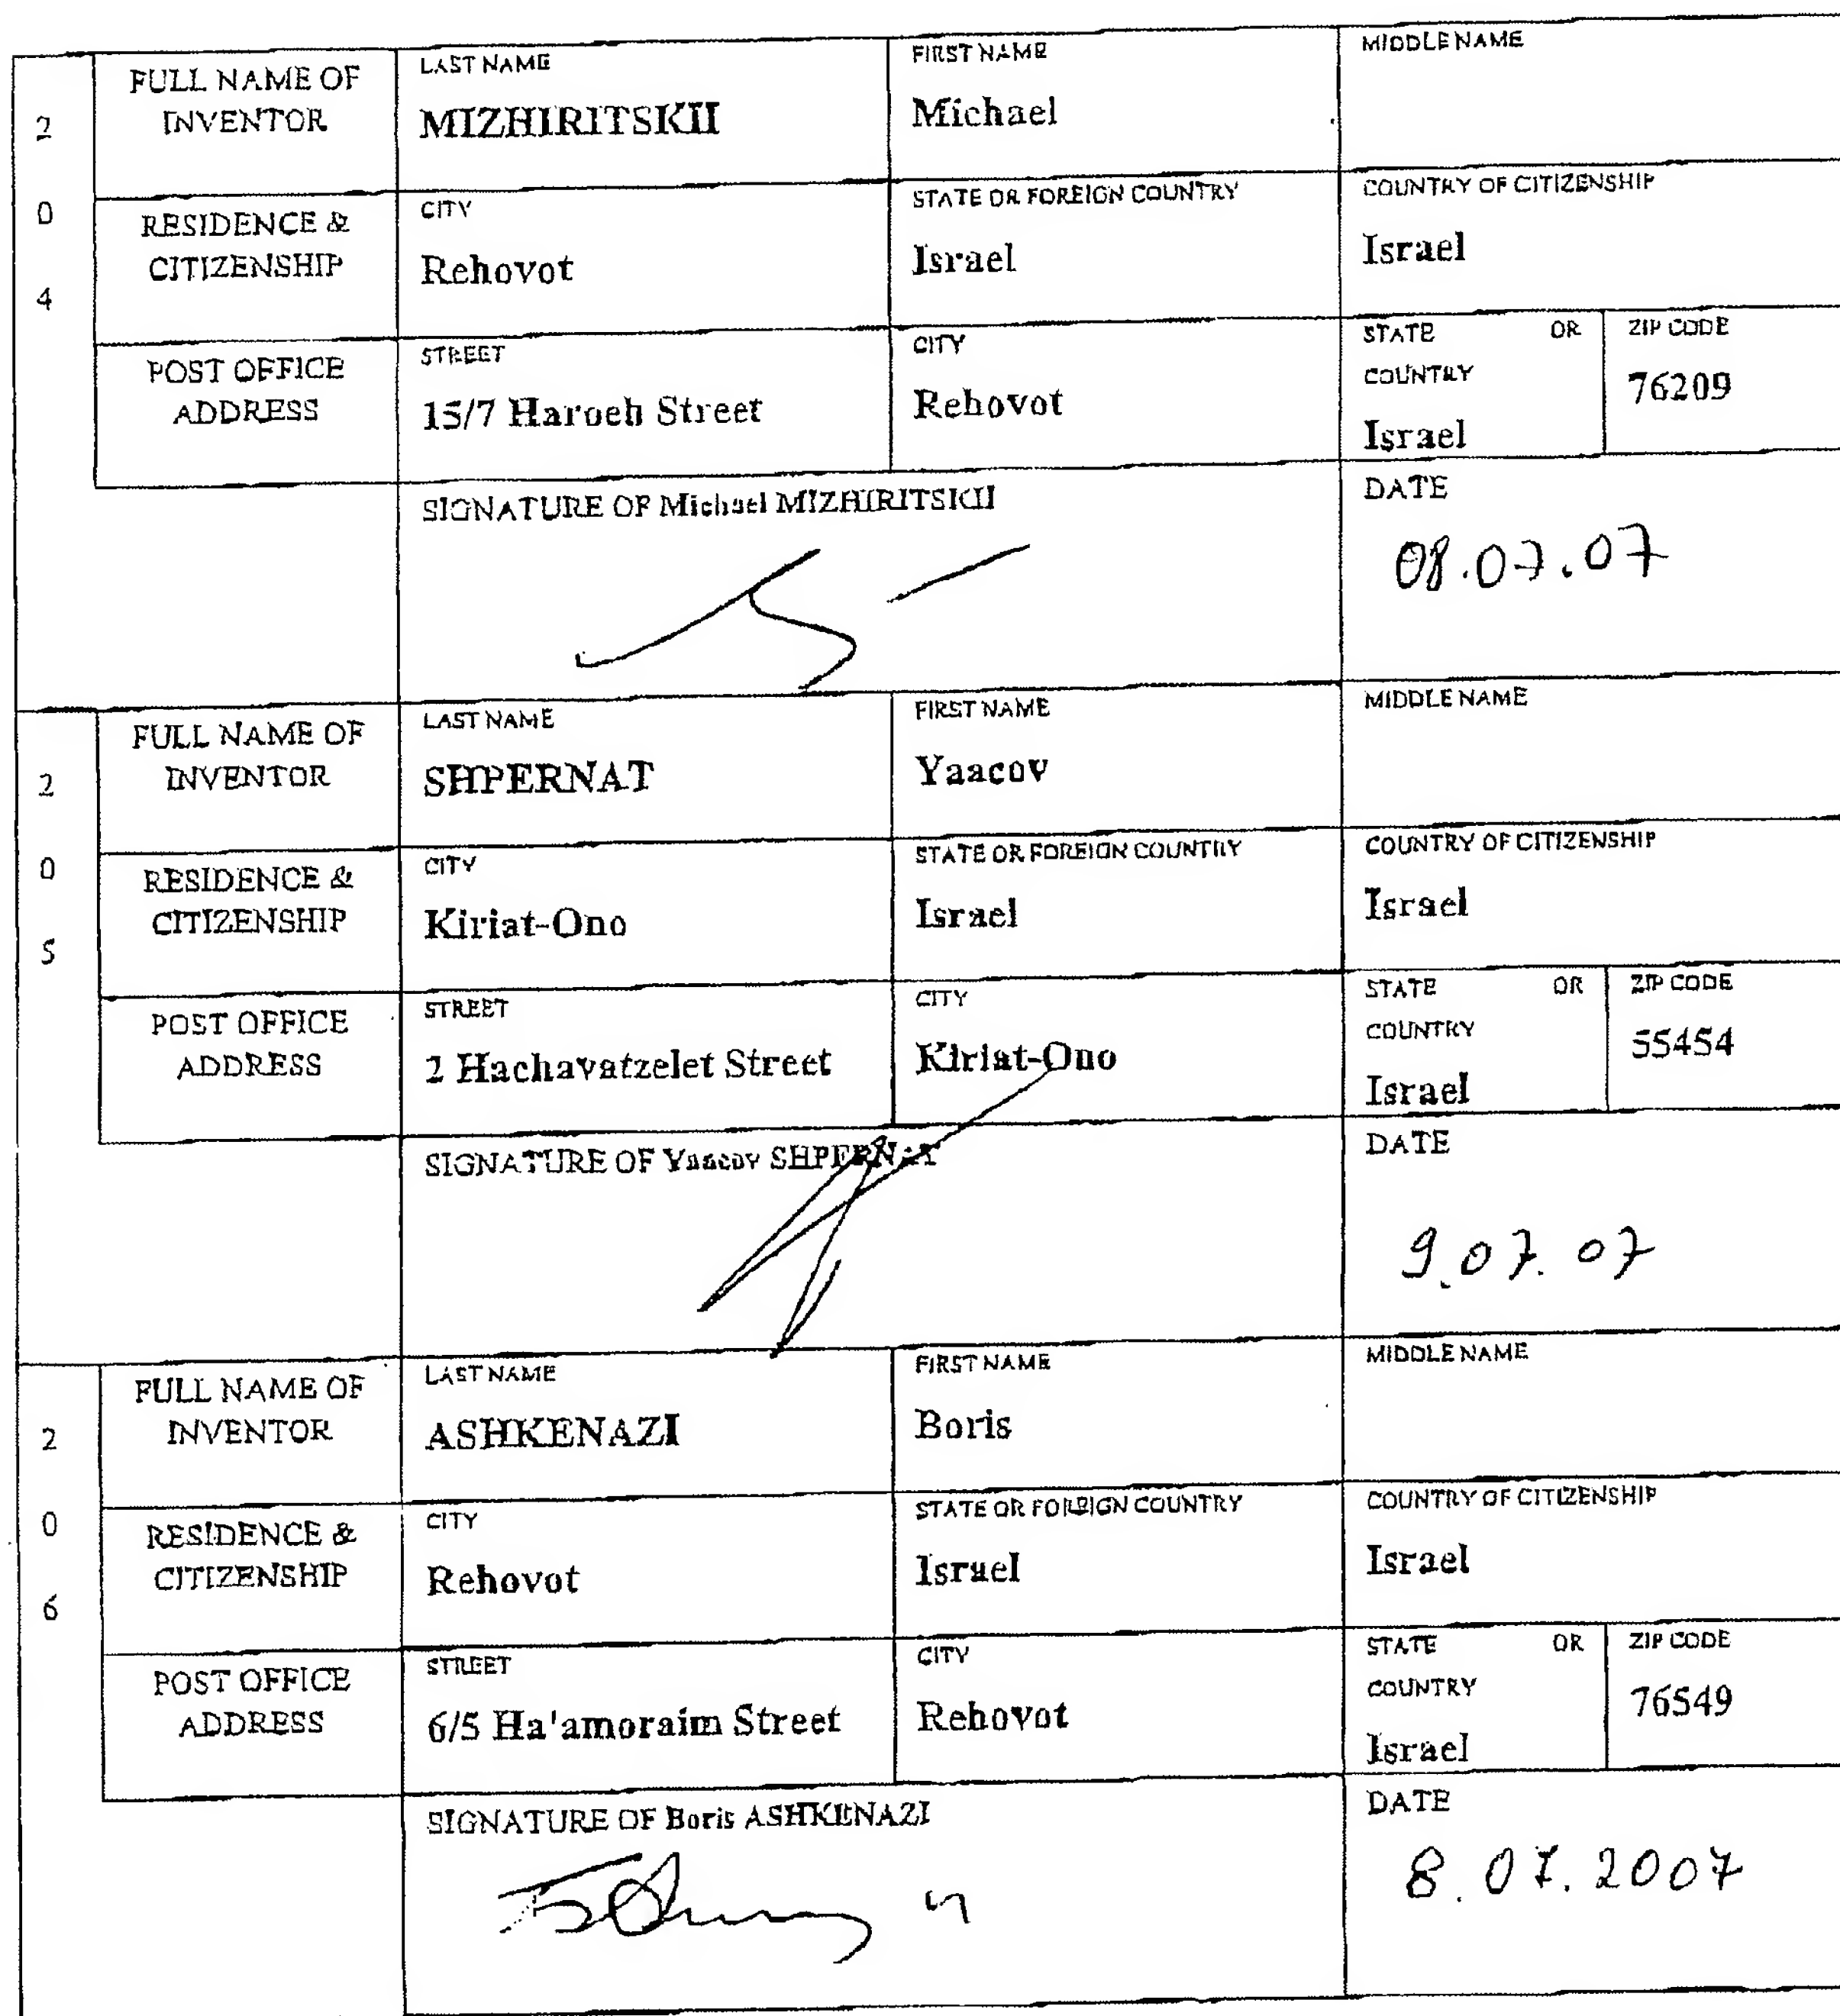 FULL NAME OF INVENTOR
LAST NAME
MIZHIRITSKII
FIRST NAME
Michael
MIDDLE NAME
2
0
4
RESIDENCE & CITIZENSHIP
CITY
Rehovot
STATE OR FOREIGN COUNTRY
Israel
COUNTRY OF CITIZENSHIP
Israel
POST OFFICE ADDRESS
STREET
15/7 Haroeh Street
CITY
Rehovot
STATE OR COUNTRY
Israel
ZIP CODE
76209
SIGNATURE OF Michael MIZHIRITSKII
DATE
08.07.07
FULL NAME OF INVENTOR
LAST NAME
SHPERNAT
FIRST NAME
Yaacov
MIDDLE NAME
2
0
5
RESIDENCE & CITIZENSHIP
CITY
Kiriat-Ono
STATE OR FOREIGN COUNTRY
Israel
COUNTRY OF CITIZENSHIP
Israel
POST OFFICE ADDRESS
STREET
2 Hachavatzelet Street
CITY
Kiriat-Ono
STATE OR COUNTRY
Israel
ZIP CODE
55454
SIGNATURE OF Yaacov SHPERNAT
DATE
9.07.07
FULL NAME OF INVENTOR
LAST NAME
ASHKENAZI
FIRST NAME
Boris
MIDDLE NAME
2
0
6
RESIDENCE & CITIZENSHIP
CITY
Rehovot
STATE OR FOREIGN COUNTRY
Israel
COUNTRY OF CITIZENSHIP
Israel
POST OFFICE ADDRESS
STREET
6/5 Ha'amoraim Street
CITY
Rehovot
STATE OR COUNTRY
Israel
ZIP CODE
76549
SIGNATURE OF Boris ASHKENAZI
DATE
8.07.2007